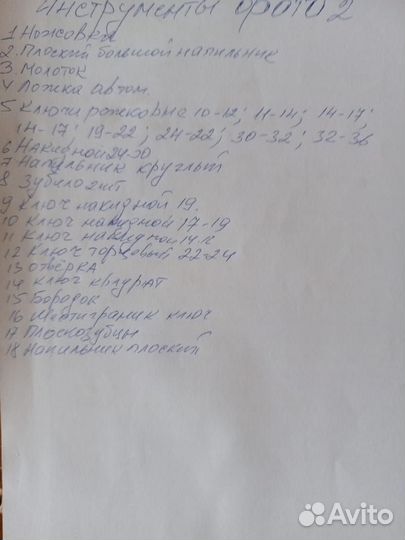 Инструменты фото 2
1 Ножовка
2. Плоский большой напильник
3. Молоток
4 Ложка автом.
5 Ключи рожковые 10-12; 11-14; 14-17;
14-17; 19-22; 24-22; 30-32; 32-36
6 Накидной 24-30
7 Напильник круглый
8 Зубило 2шт
9 Ключ накидной 19.
10 Ключ накидной 17-19
11 Ключ накидной 14-12
12 Ключ торцовый 22-24
13 отвёрка
14 ключ квадрат
15 Бородок
16 Шестигранник ключ
17 Плоскозубцы
18 Напильник плоский
Avito